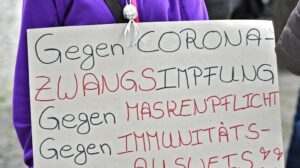 Gegen CORONA-
ZWANGSIMPFUNG
Gegen MASKENPFLICHT
Gegen IMMUNITÄTS-
AUSWEIS